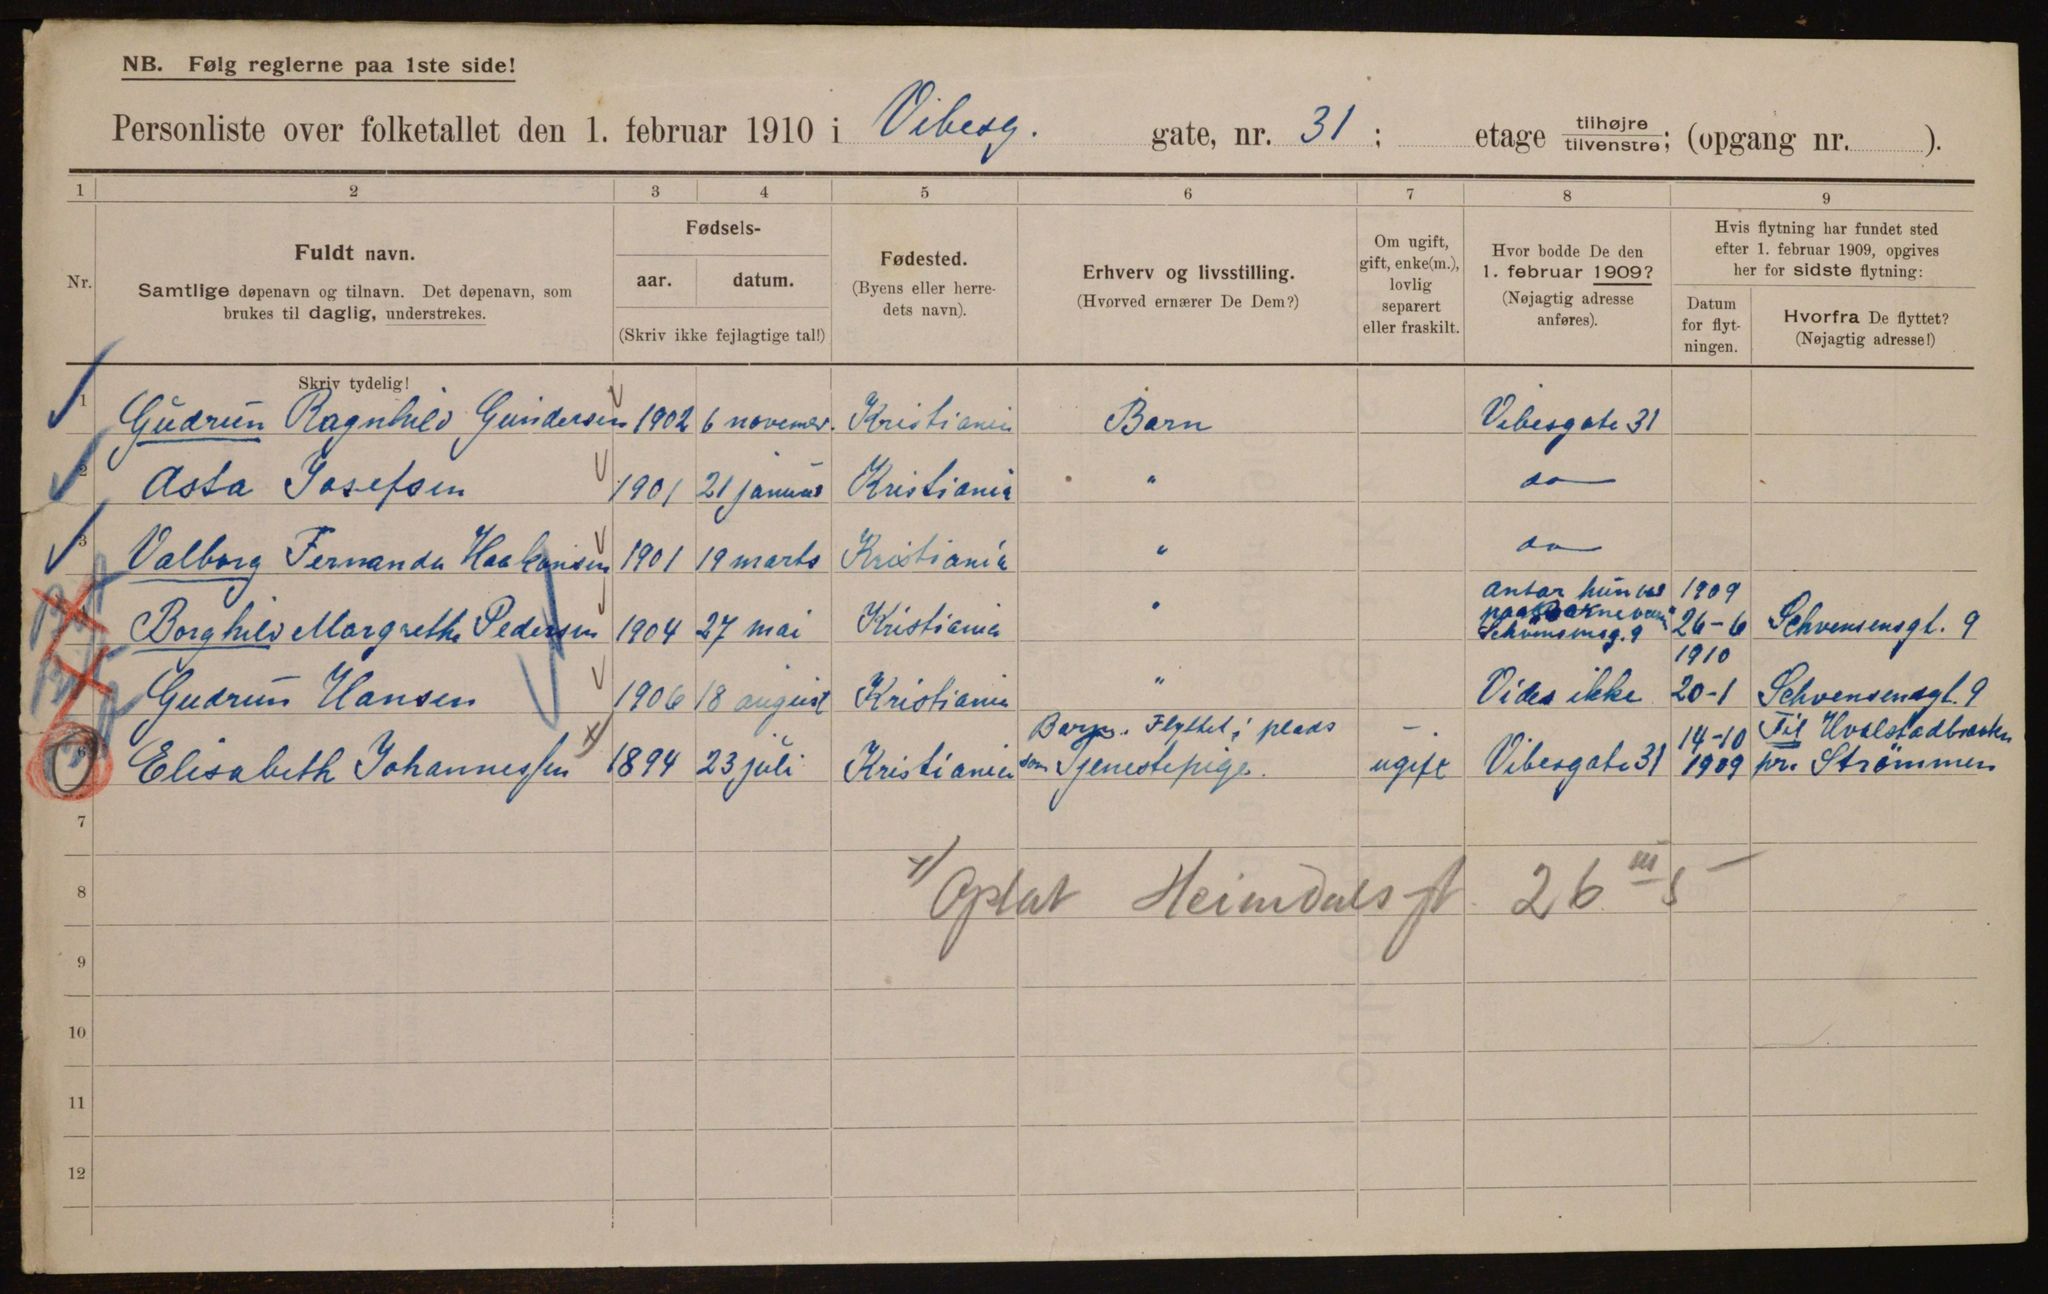 NB. Følg reglerne paa 1ste side!
Personliste over folketallet den 1. februar 1910 i Vibesg. gate, nr. 31 ; etage tilhøjre/tilvenstre; (opgang nr. ).
1 2 3 4 5 6 7 8 9
Nr.
Fuldt navn.
Samtlige døpenavn og tilnavn. Det døpenavn, som
brukes til daglig, understrekes.
Fødsels-
aar. datum.
(Skriv ikke fejlagtige tal!)
Fødested.
(Byens eller herre-
dets navn).
Erhverv og livsstilling.
(Hvorved ernærer De Dem?)
Om ugift,
gift, enke(m.),
lovlig
separert
eller fraskilt.
Hvor bodde De den
1. februar 1909?
(Nøjagtig adresse
anføres).
Hvis flytning har fundet sted
efter 1. februar 1909, opgives
her for sidste flytning:
Datum
for flyt-
ningen.
Hvorfra De flyttet?
(Nøjagtig adresse!)
Skriv tydelig!
1 Gudrun Ragnhild Gundersen 1902 6 novembr. Kristiania Barn Vibesgate 31
2 Asta Josefsen 1901 21 januar Kristiania " do
3 Valborg Fernanda Haakonsen 1901 19 marts Kristiania " do
Borghild Margrethe Pedersen 1904 27 mai Kristiania " antar hun var
Schvensensg. 9 1909
26-6 Schvensensgt. 9
Gudrun Hansen 1906 18 august Kristiania " Vides ikke 1910
20-1 Schvensensgt. 9
6 Elisabeth Johannessen x) 1894 23 juli Kristiania Barn. Flyttet i plads
som Tjenestepige. ugift Vibesgate 31 14-10
1909 Til Hvalstadbakken
pr. Strømmen
7
8 x) Heimdalsgt 26
9
10
11
12